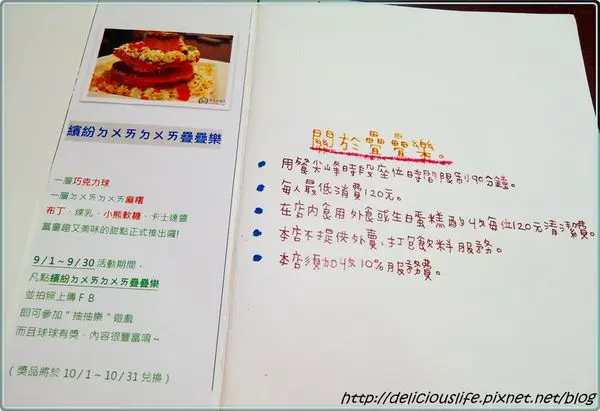 繽紛ㄉㄨㄞㄉㄨㄞ疊疊樂
一層巧克力球
一層ㄉㄨㄞㄉㄨㄞ麻糬
布丁、煉乳、小熊軟糖、卡士達醬
富童趣又美味的甜點正式推出囉!
9/1~9/30活動期間，
凡點繽紛ㄉㄨㄞㄉㄨㄞ疊疊樂
並拍照上傳FB
即可參加"抽抽樂"遊戲
而且球球有獎，內容很豐富唷~
(獎品將於10/1~10/31兌換)
關於疊疊樂。
用餐尖峰時段座位時間限制90分鐘。
每人最低消費120元。
在店內食用外食或生日蛋糕酌收每位120元清潔費。
本店不提供外賣，打包飲料服務。
本店須加收10%服務費。
http://deliciouslife.pixnet.net/blog